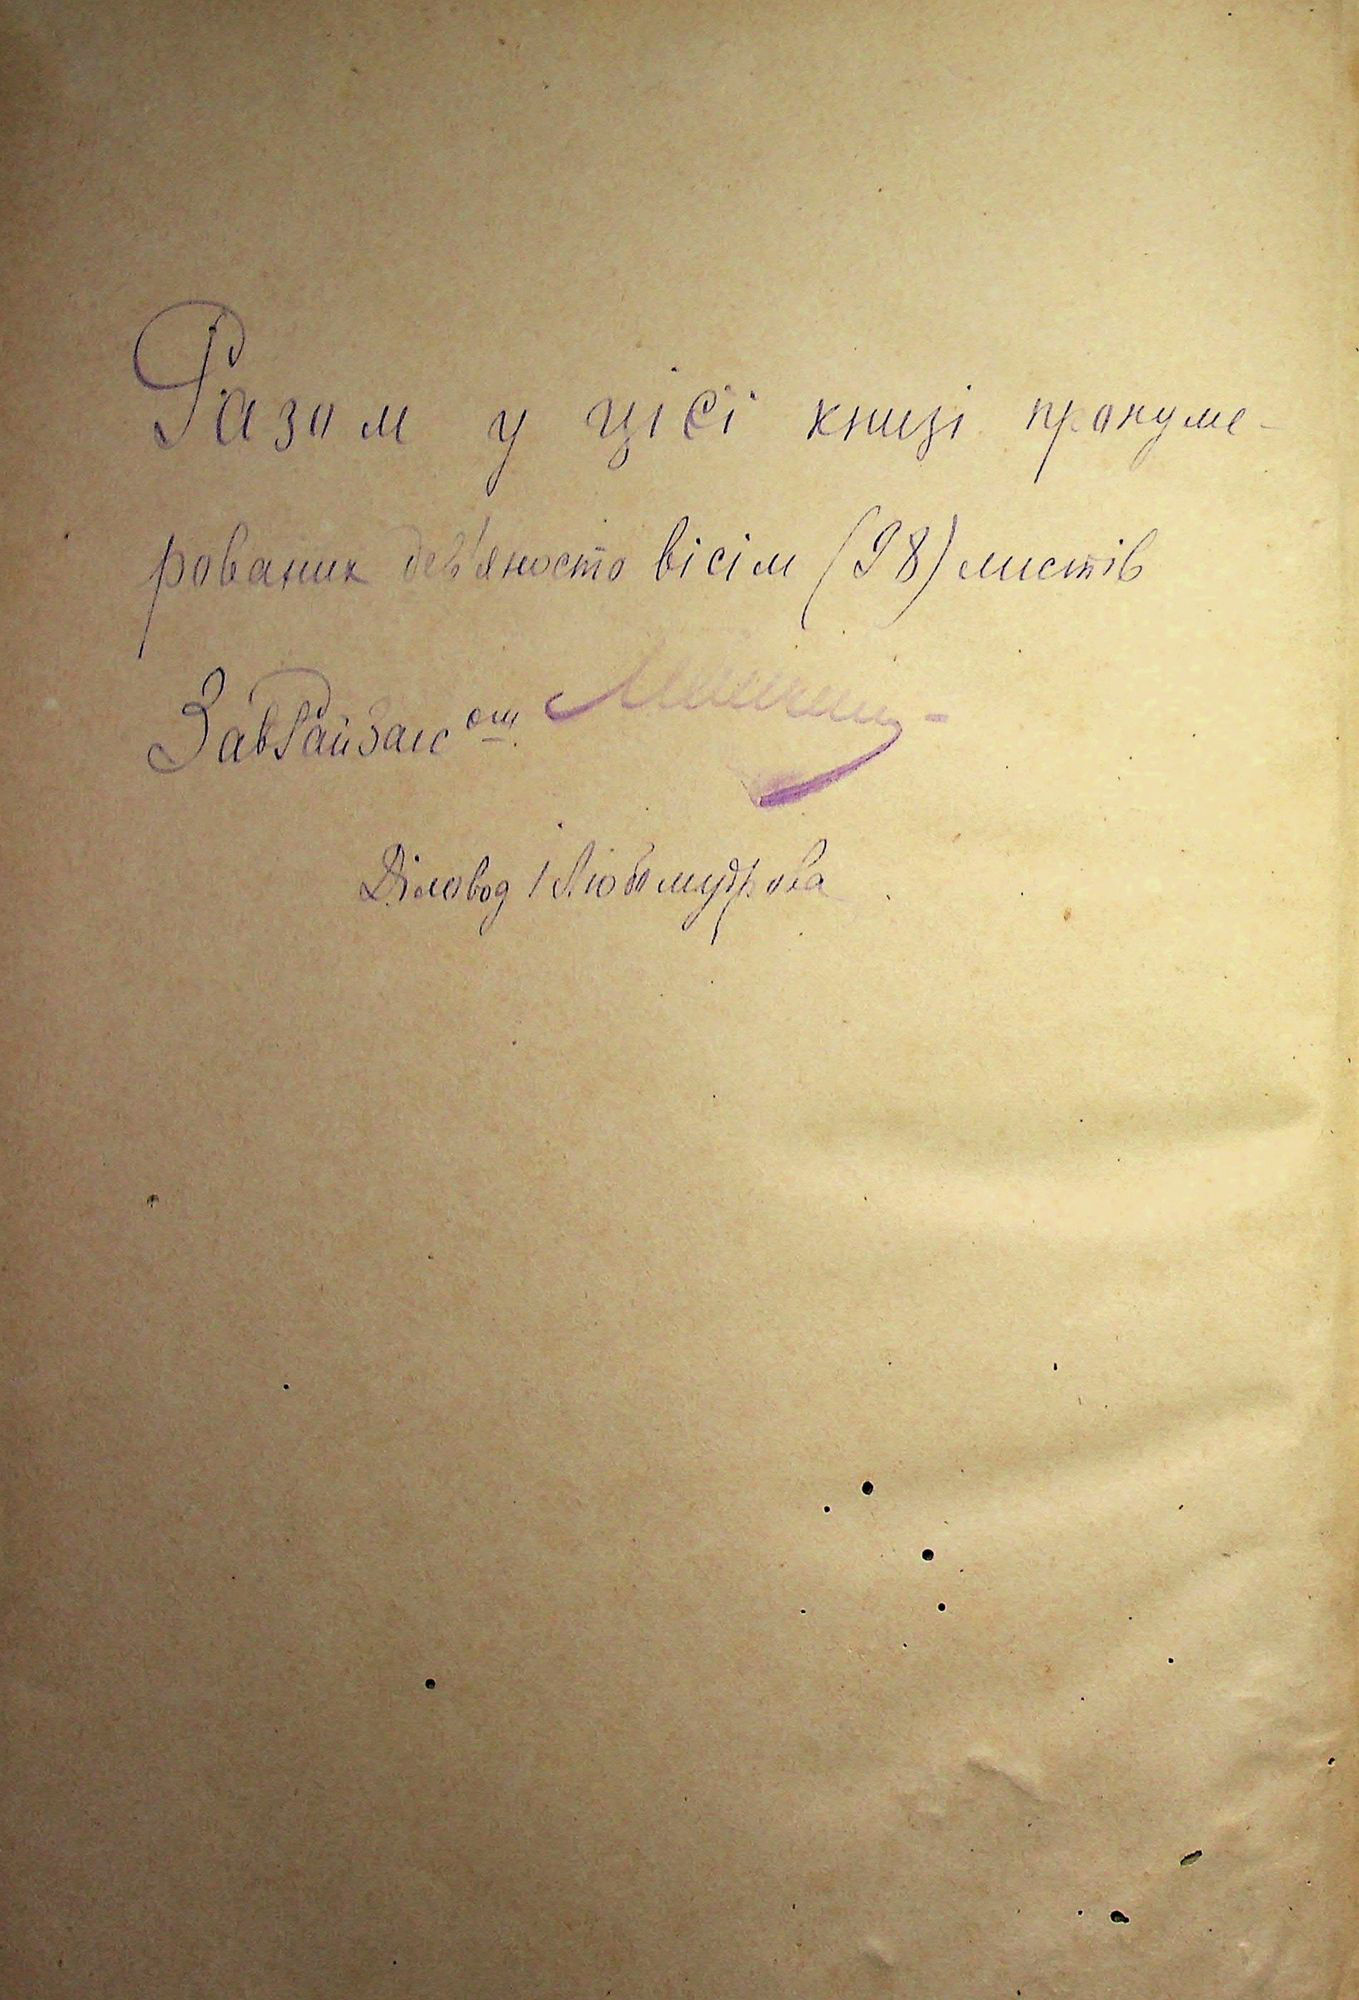 Разом у цієї книзі пронуме-
рованих дев'яносто вісім (98) листів
ЗавРайЗагс
Діловод /Любомудрова